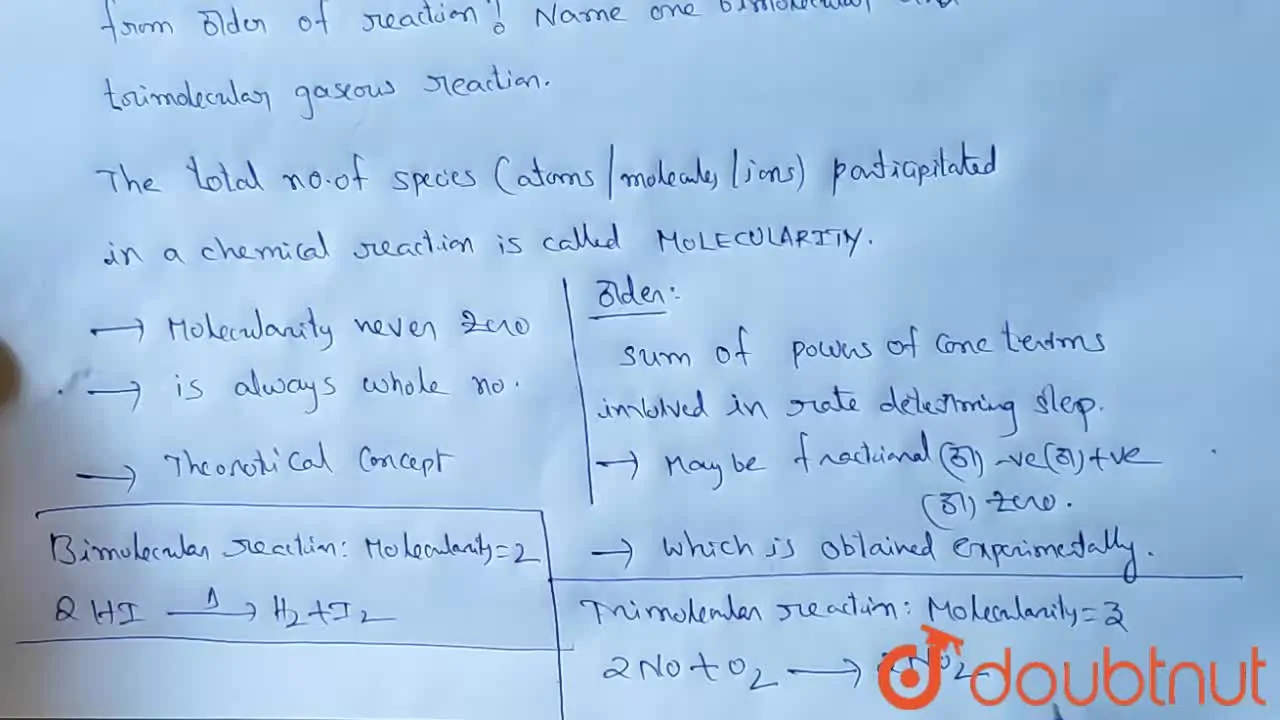 from order of reaction? Name one bimolecular and
trimolecular gaseous reaction.
The total no. of species (atoms/molecules/ions) participitated
in a chemical reaction is called MOLECULARITY.
→ Molecularity never zero
→ is always whole no.
→ Theoretical Concept
Order:
sum of powers of conc terms
involved in rate determining step.
→ May be fractional (or) -ve (or) +ve
(or) zero.
→ which is obtained experimentally.
Bimolecular reaction: Molecularity = 2
2HI →Δ H2 + I2
Trimolecular reaction: Molecularity = 3
2NO + O2 → 2NO2
doubtnut